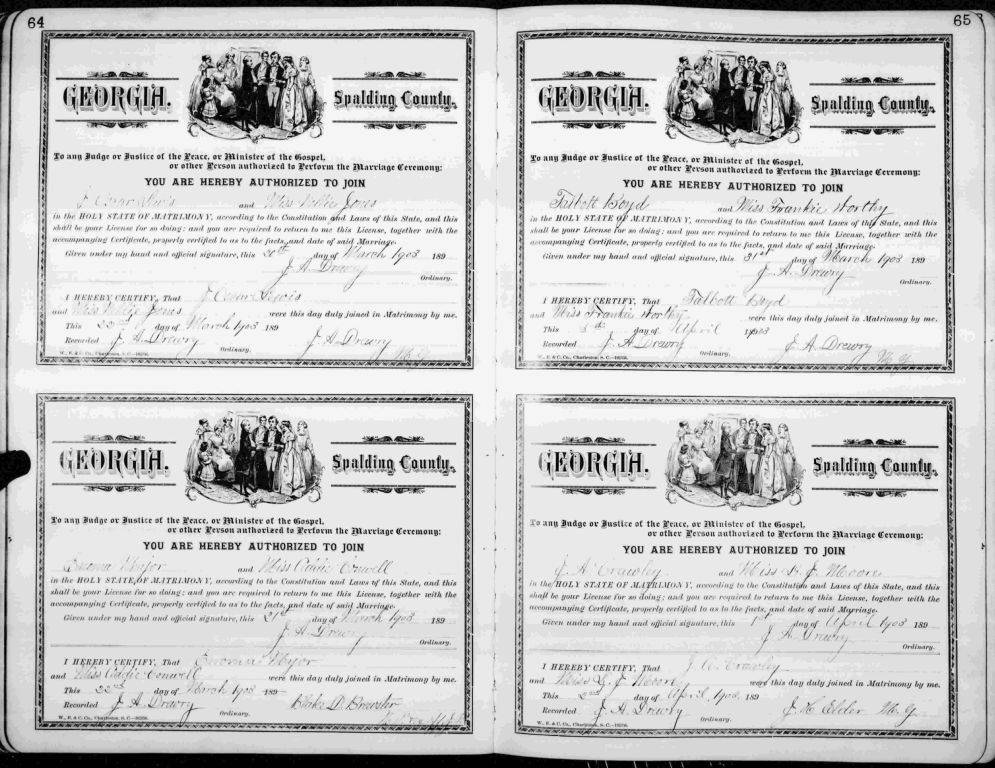 64
GEORGIA.
Spalding County,
To any Judge or Justice of the Peace, or Minister of the Gospel,
or other Person authorized to Perform the Marriage Ceremony:
YOU ARE HEREBY AUTHORIZED TO JOIN
J and Miss Jones
in the HOLY STATE OF MATRIMONY, according to the Constitution and Laws of this State, and this
shall be your License for so doing; and you are required to return to me this License, together with the
accompanying Certificate, properly certified to as to the facts, and date of said Marriage.
Given under my hand and official signature, this 20th day of March 1903 189
J. A. Drewry
Ordinary.
I HEREBY CERTIFY, That J Lewis
and Miss Jones were this day duly joined in Matrimony by me.
This 22nd day of March 1903 189
Recorded J. A. Drewry J. A. Drewry
Ordinary.
W., E. & C. Co., Charleston, S. C.
GEORGIA.
Spalding County,
To any Judge or Justice of the Peace, or Minister of the Gospel,
or other Person authorized to Perform the Marriage Ceremony:
YOU ARE HEREBY AUTHORIZED TO JOIN
and Miss Conwell
in the HOLY STATE OF MATRIMONY, according to the Constitution and Laws of this State, and this
shall be your License for so doing; and you are required to return to me this License, together with the
accompanying Certificate, properly certified to as to the facts, and date of said Marriage.
Given under my hand and official signature, this 21st day of March 1903 189
J. A. Drewry
Ordinary.
I HEREBY CERTIFY, That
and Miss Conwell were this day duly joined in Matrimony by me.
This 22nd day of March 1903 189
Recorded J. A. Drewry Blake D. Brewster
Ordinary.
W., E. & C. Co., Charleston, S. C.
65
GEORGIA.
Spalding County,
To any Judge or Justice of the Peace, or Minister of the Gospel,
or other Person authorized to Perform the Marriage Ceremony:
YOU ARE HEREBY AUTHORIZED TO JOIN
Talbott Boyd and Miss Frankie Worthy
in the HOLY STATE OF MATRIMONY, according to the Constitution and Laws of this State, and this
shall be your License for so doing; and you are required to return to me this License, together with the
accompanying Certificate, properly certified to as to the facts, and date of said Marriage.
Given under my hand and official signature, this 31st day of March 1903 189
J. A. Drewry
Ordinary.
I HEREBY CERTIFY, That Talbott Boyd
and Miss Frankie Worthy were this day duly joined in Matrimony by me.
This day of April 1903
Recorded J. A. Drewry J. A. Drewry
Ordinary. M. G.
W., E. & C. Co., Charleston, S. C.
GEORGIA.
Spalding County,
To any Judge or Justice of the Peace, or Minister of the Gospel,
or other Person authorized to Perform the Marriage Ceremony:
YOU ARE HEREBY AUTHORIZED TO JOIN
J. A. Crawley and Miss J. Moore
in the HOLY STATE OF MATRIMONY, according to the Constitution and Laws of this State, and this
shall be your License for so doing; and you are required to return to me this License, together with the
accompanying Certificate, properly certified to as to the facts, and date of said Marriage.
Given under my hand and official signature, this 1st day of April 1903 189
J. A. Drewry
Ordinary.
I HEREBY CERTIFY, That J. A. Crawley
and Miss J. Moore were this day duly joined in Matrimony by me.
This 2nd day of April 1903 189
Recorded J. A. Drewry J. H. Elder M. G.
Ordinary.
W., E. & C. Co., Charleston, S. C.